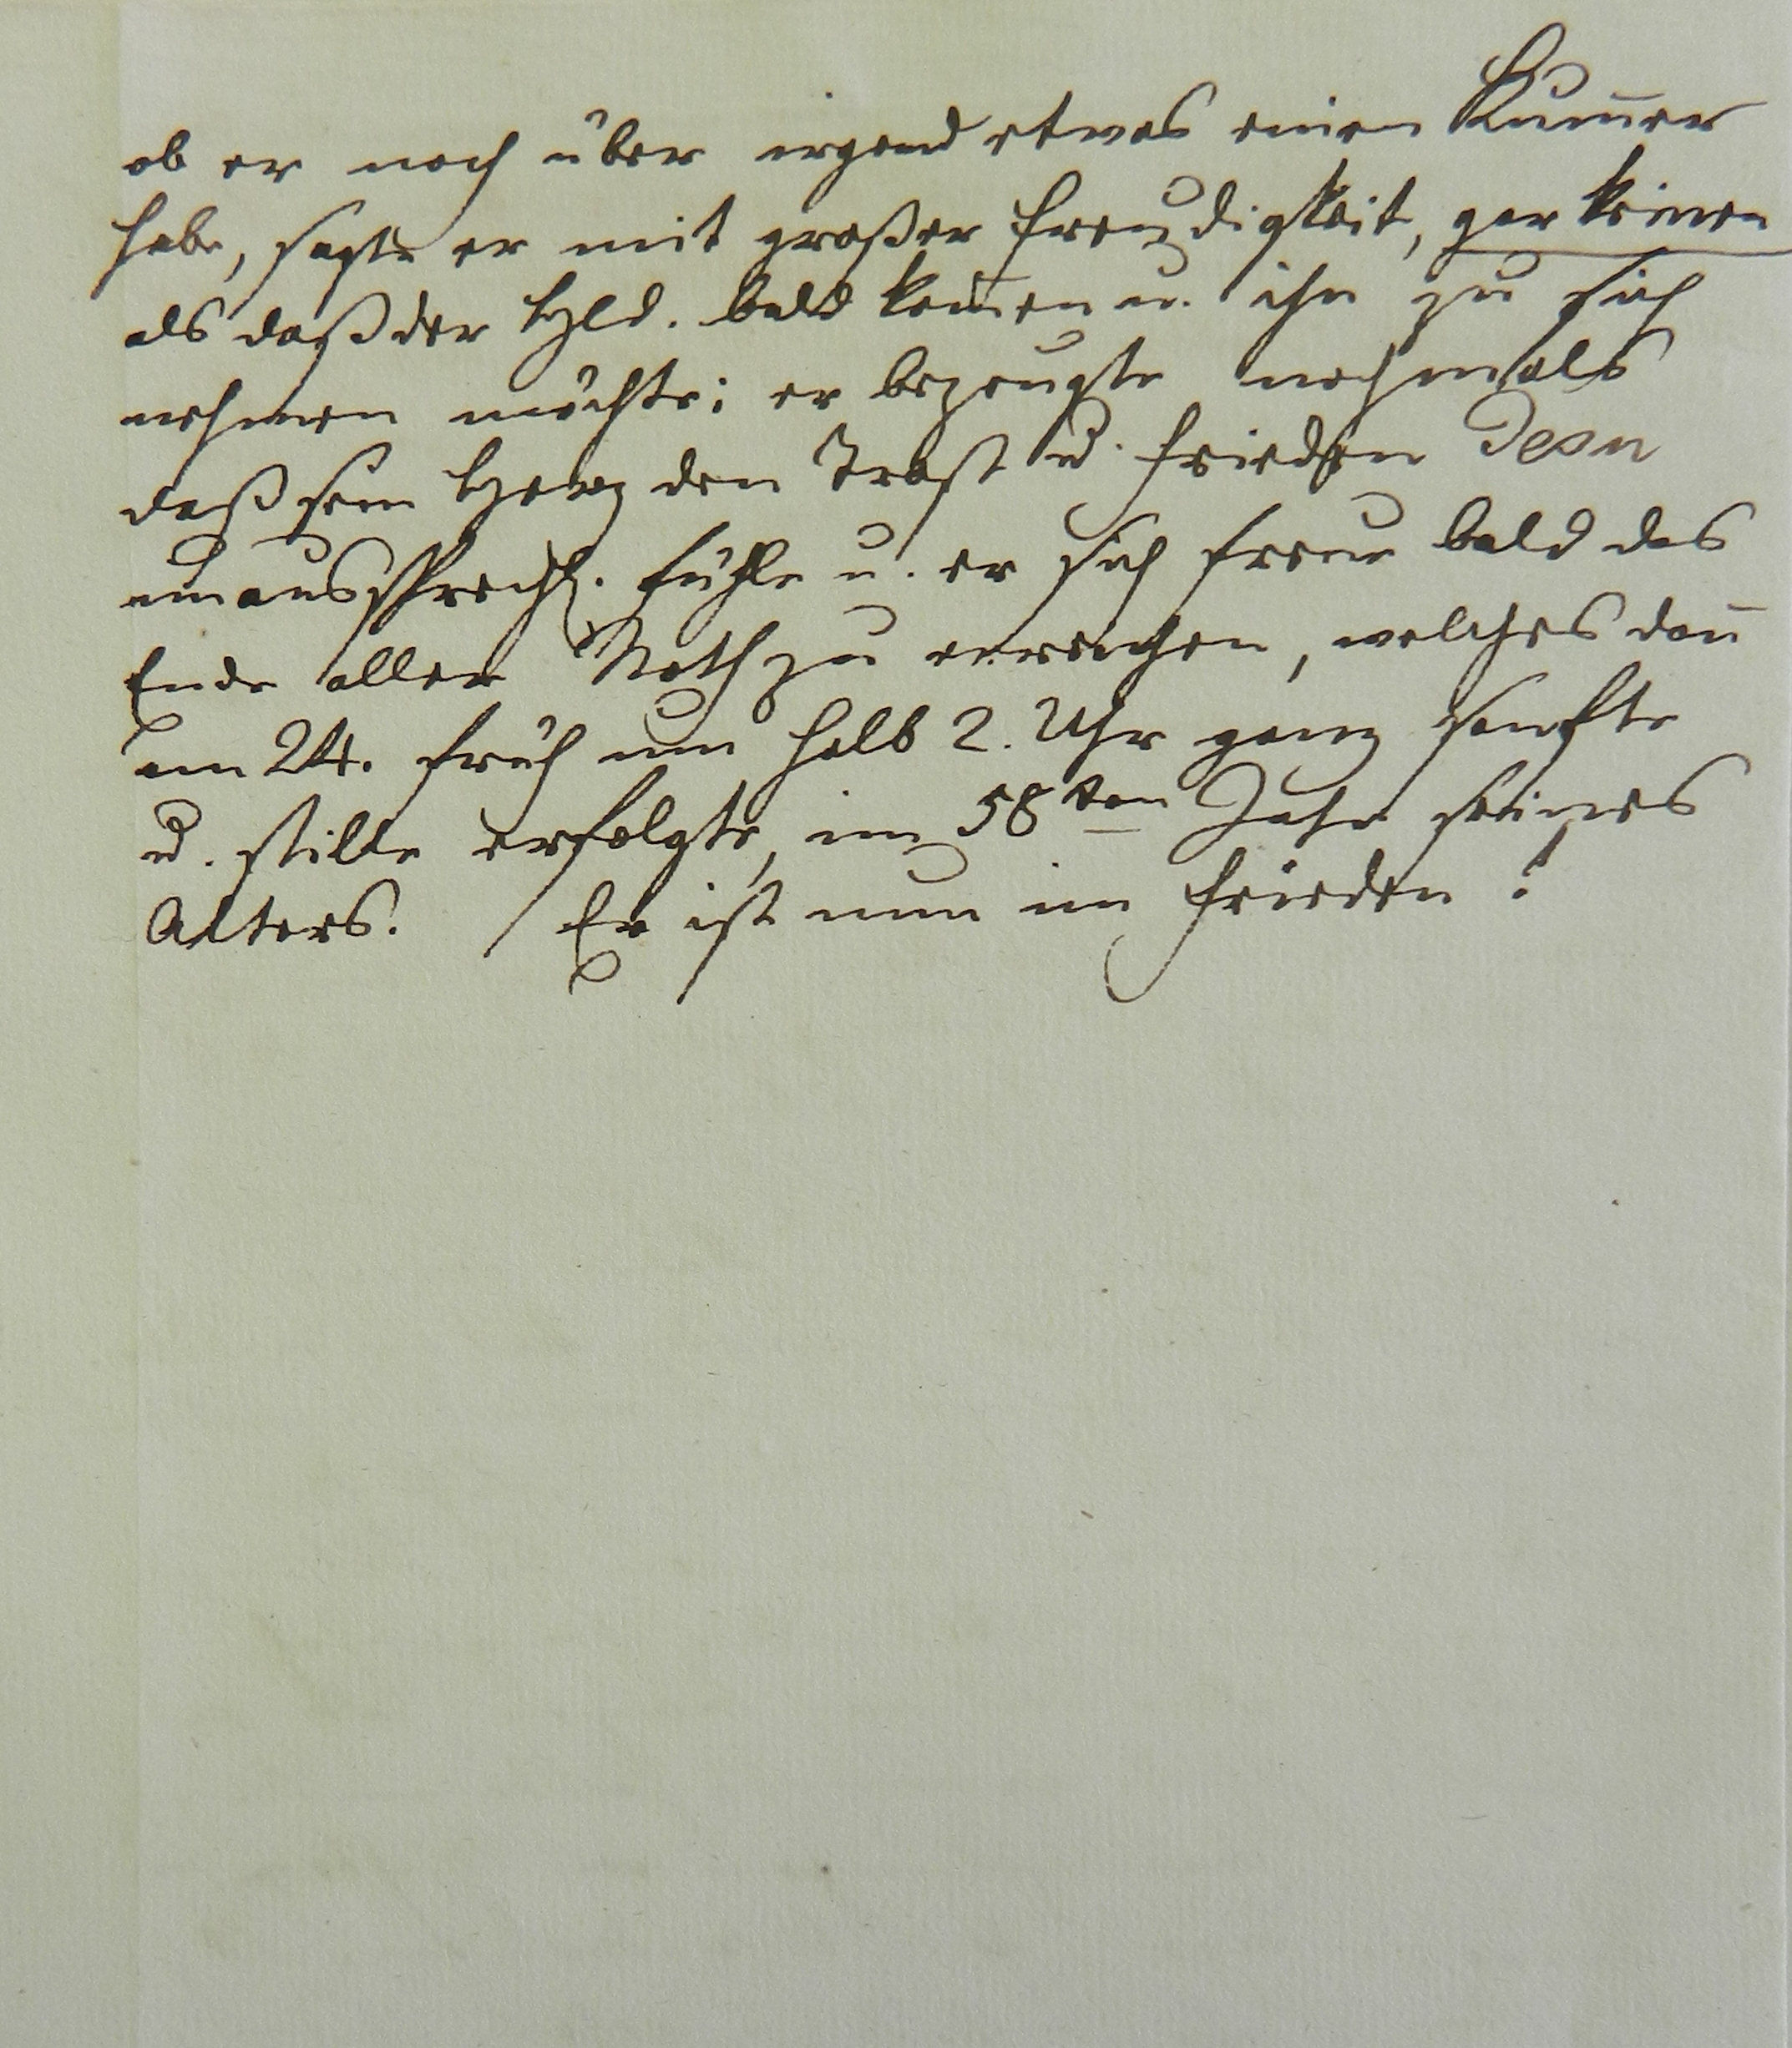 ob er noch über irgend etwas einen Kum̄er
habe, sagte er mit großer Freudigkeit, gar keinen
als daß der Hld. bald kom̄en u. ihn zu sich
nehmen möchte; er bezeugte nochmals
daß sein Herz den Trost u. Frieden Jesu
unaussprechl. fühle u. er sich freue bald das
Ende aller Noth zu erreichen, welches dan̄
am 24. früh um halb 2. Uhr ganz sanfte
u. stille erfolgte, im 58ten Jahr seines
Alters. / Er ist nun im Frieden!